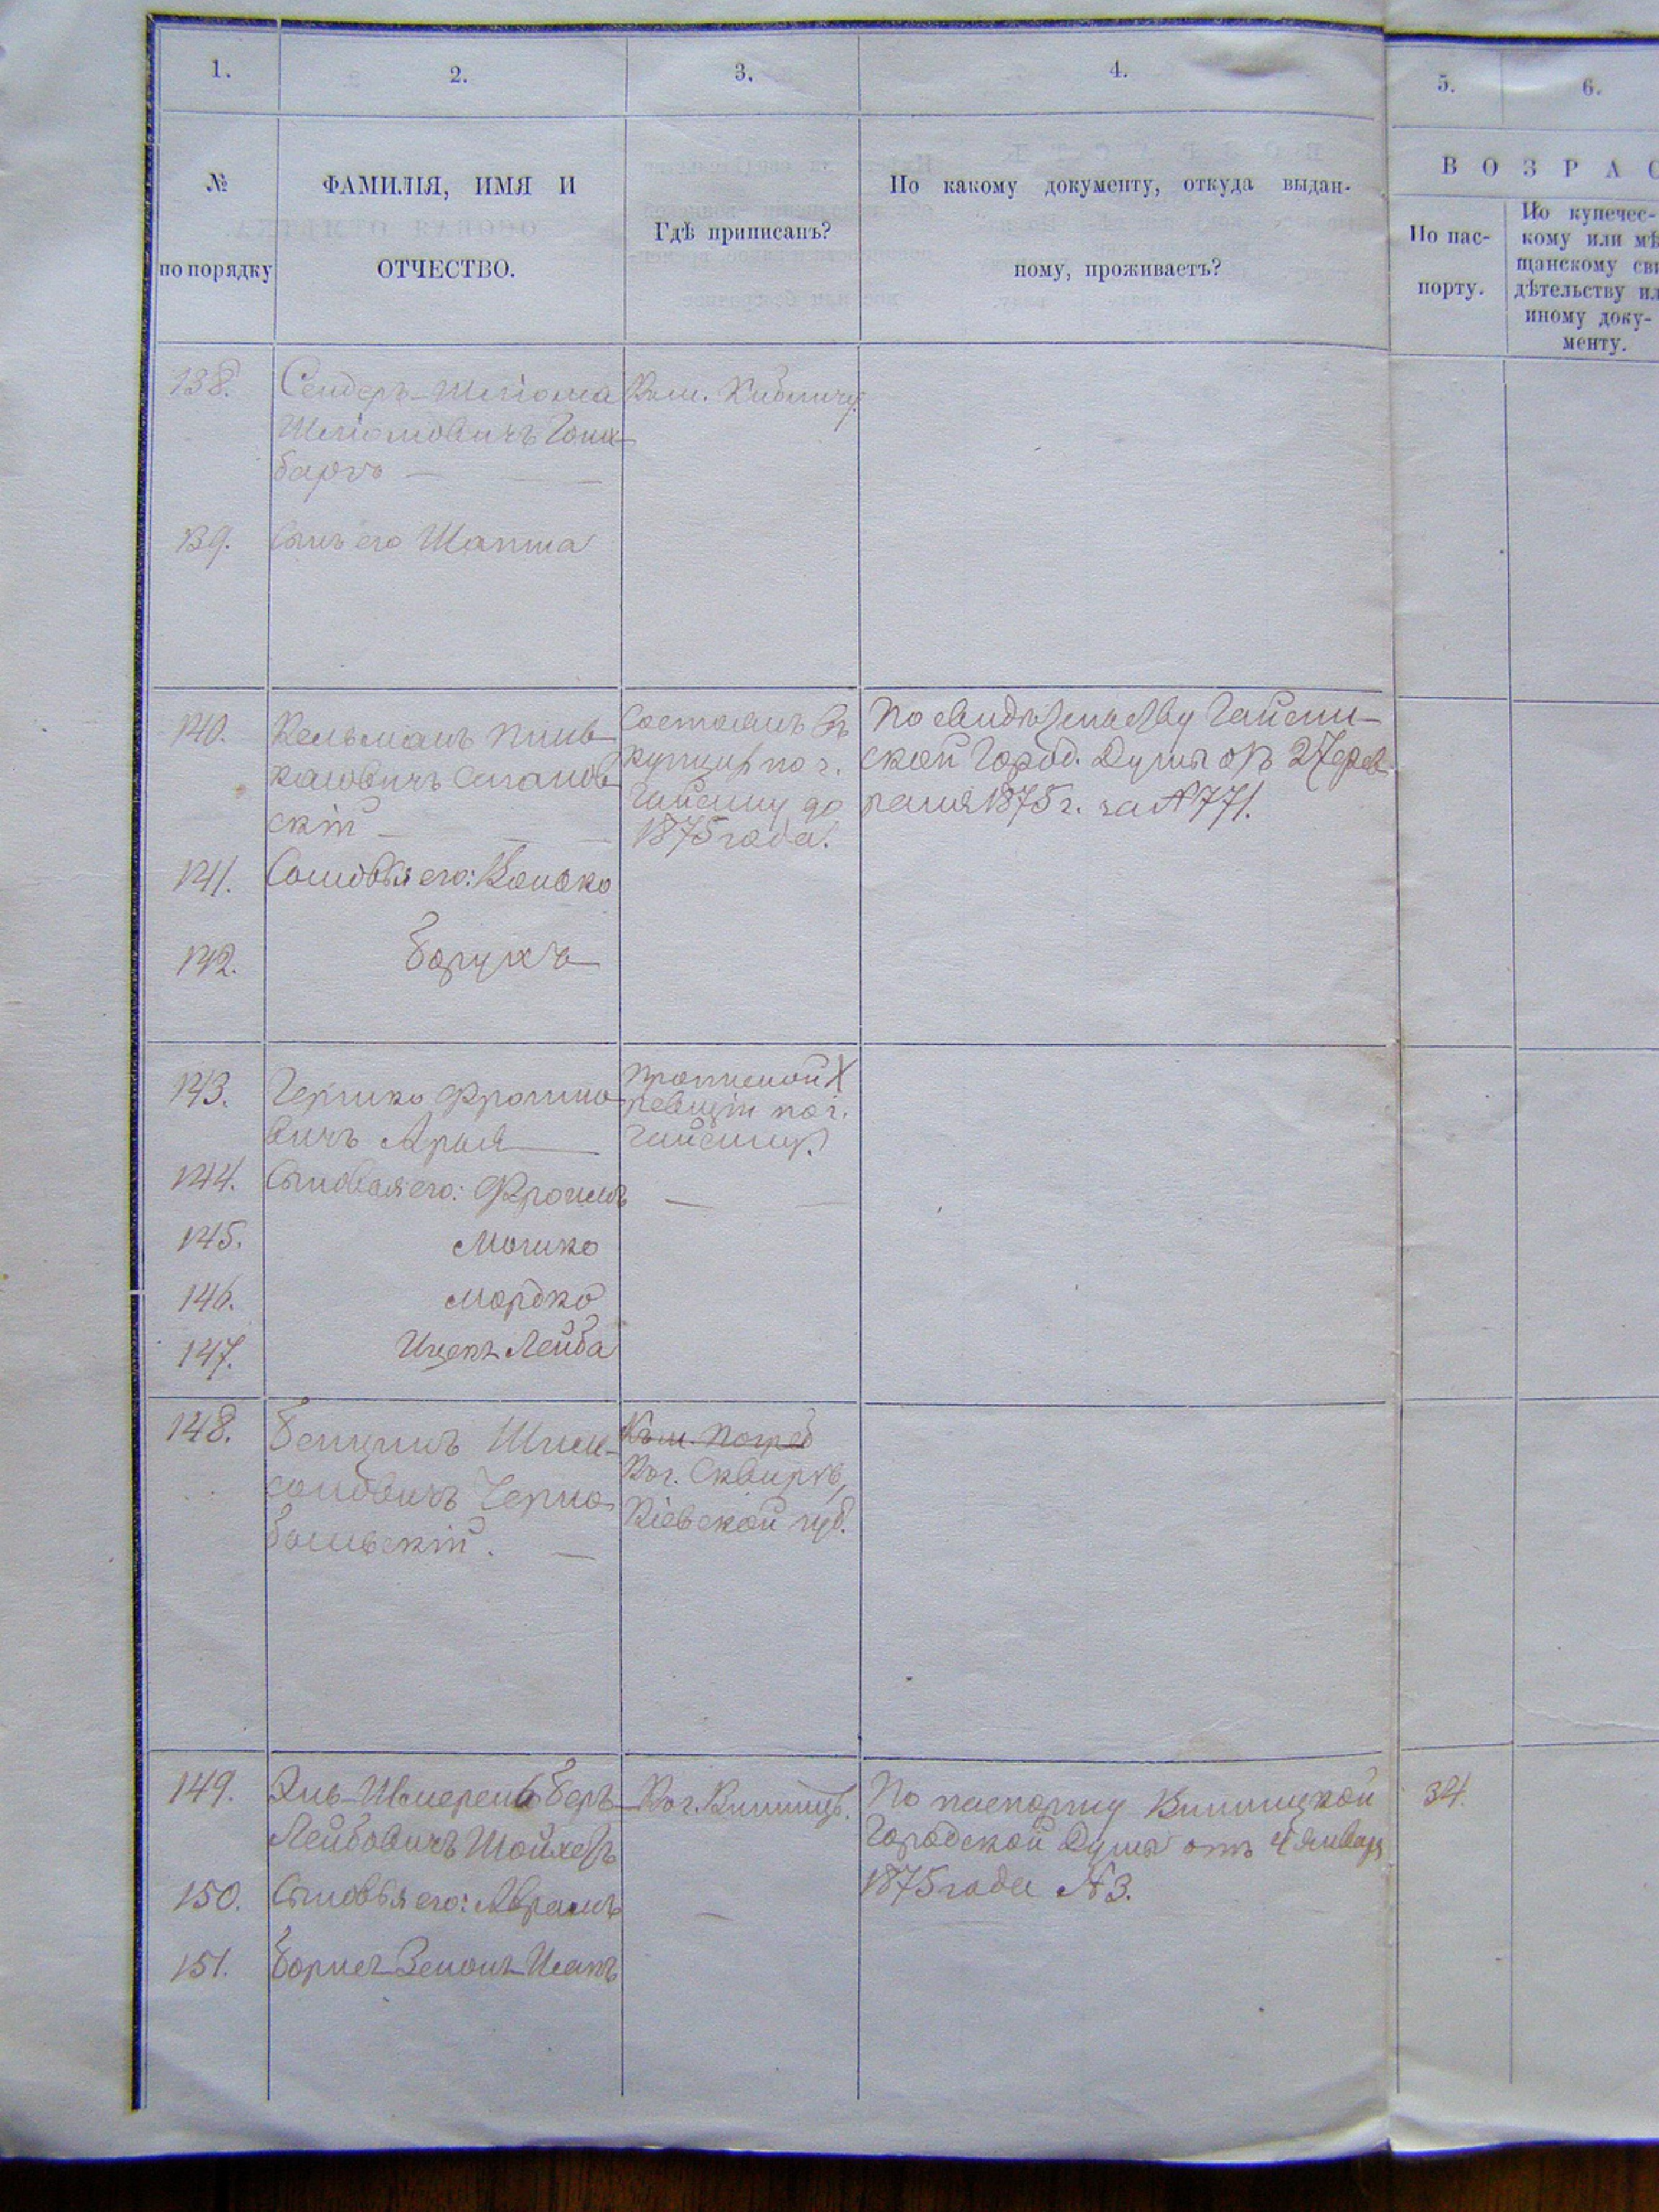 1.
2.
3.
4.
5.
6.
№
по порядку
ФАМИЛІЯ, ИМЯ И
ОТЧЕСТВО.
Гдѣ приписанъ?
По какому документу, откуда выдан-
ному, проживаетъ?
ВОЗРАС
По пас-
порту.
По купечес-
кому или мѣ
щанскому сви
дѣтельству ил
иному доку-
менту.
138.
Сендеръ-Шліома
Шліомовичъ Гоих-
баргъ
Къ м. Кибличу.
139.
Сынъ его Шапша
140.
Кельманъ Пинь-
касовичъ
скій
Состоялъ въ
купцахъ по г.
Гайсину до
1875 года.
По свидѣтельству Гайсин-
ской Город. Думы отъ 27 фев-
раля 1875 г. за № 771.
141.
Сыновья его:
142.
Борухъ
143.
Гершко Фроимо-
вичъ
ревизіи по г.
Гайсину.
144.
Сыновья его: Фроимъ
145.
Мошко
146.
Мордко
147.
Ицекъ Лейба
148.
Бенціонъ Шим-
соновичъ Черно-
быльскій.
Къ м. Погреб
Къ г. Сквирѣ,
Кіевской губ.
149.
Эль-Шмерель Беръ-
Лейбовичъ Шойхетъ
Къ г. Винницѣ.
По паспорту Винницкой
Городской Думы отъ 4 Января
1875 года № 3.
34.
150.
Сыновья его: Аврамъ
151.
Борух-Зельманъ Исакъ